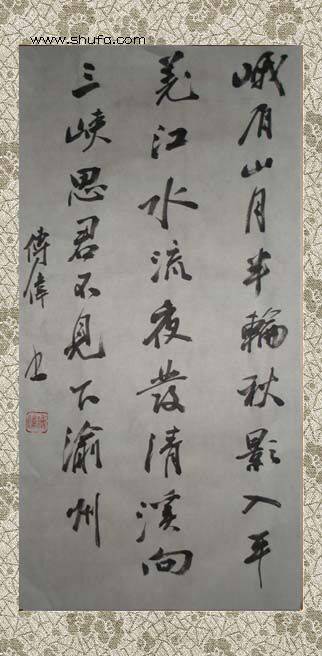 www.shufa.com
峨眉山月半輪秋影入平
羌江水流夜發清溪向
三峽思君不見下渝州
傅偉书